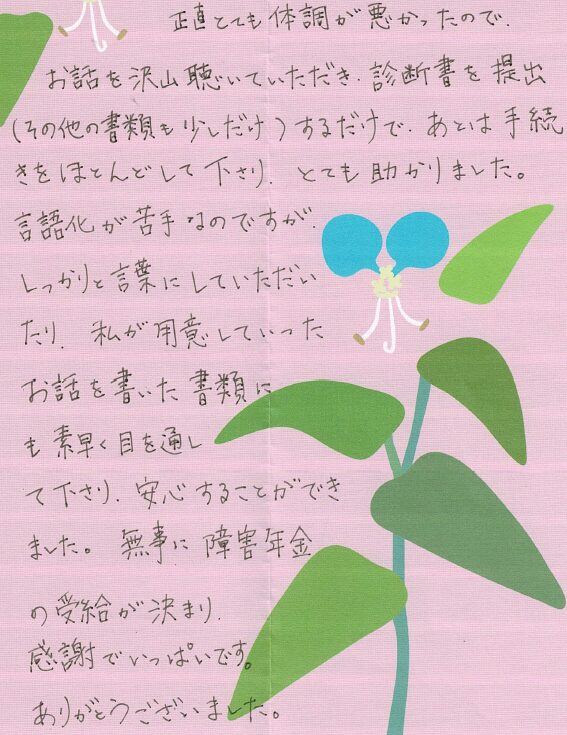 正直とても体調が悪かったので、
お話を沢山聴いていただき、診断書を提出
(その他の書類も少しだけ)するだけで、あとは手続
きをほとんどして下さり、とても助かりました。
言語化が苦手なのですが、
しっかりと言葉にしていただい
たり、私が用意していった
お話を書いた書類に
も素早く目を通し
て下さり、安心することができ
ました。無事に障害年金
の受給が決まり、
感謝でいっぱいです。
ありがとうございました。